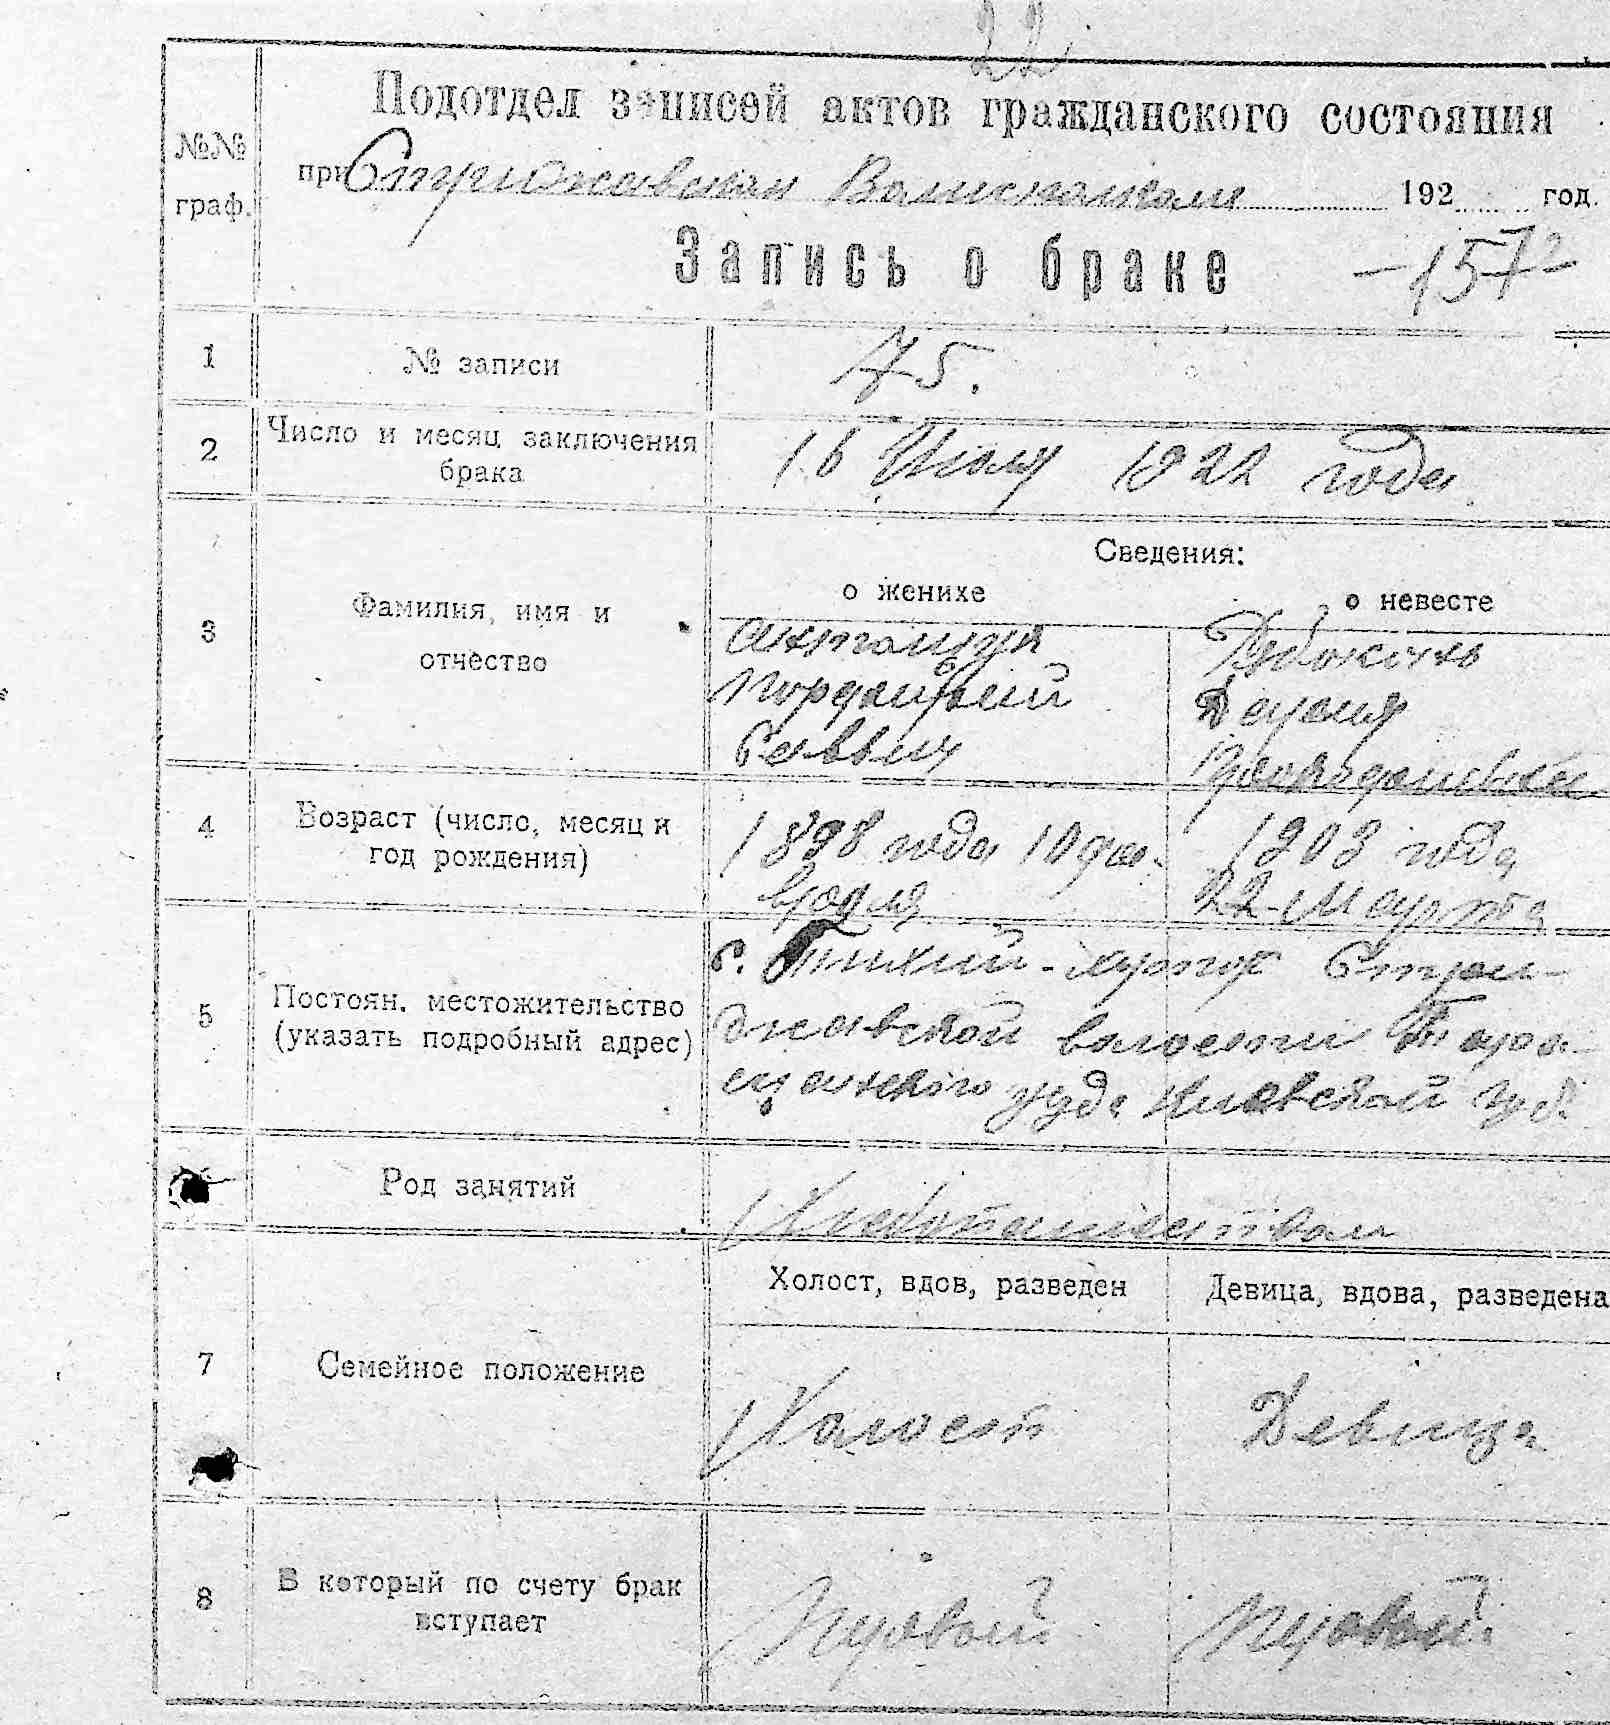 22
Подотдел записей актов гражданского состояния
№№ граф.
при Стрижавском Волисполкоме 192 год.
Запись о браке
-157²
1 № записи 75.
2 Число и месяц заключения брака 16 Июля 1922 года
Сведения:
о женихе о невесте
3 Фамилия, имя и отчество
Антонюк
Саввич
Дария
4 Возраст (число, месяц и год рождения)
1898 года 10 фев-
раля
1903 года
22 Марта
5 Постоян. местожительство (указать подробный адрес)
с. Тихий-хутор Стри-
жавской волости Тара-
щанского уезда Киевской губ.
Род занятий Хлебопашеством
Холост, вдов, разведен Девица, вдова, разведена
7 Семейное положение Холост Девица
8 В который по счету брак вступает Первой Первой